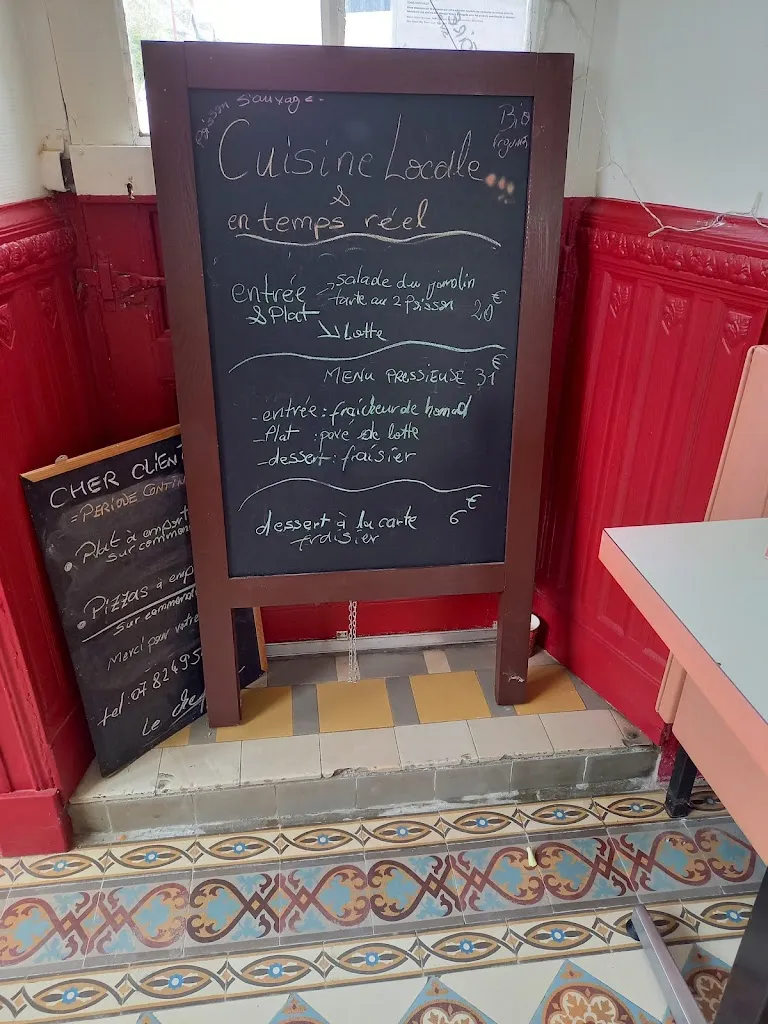 Poisson sauvage
Bio
légumes
Cuisine Locale
&
en temps réel
entrée → salade du jardin
tarte au 2 Poisson 20€
& Plat
↘ Lotte
MENU PRESSIEUSE 31€
- entrée : fraicheur de homad
- Plat : pavé de lotte
- dessert : fraisier
dessert à la carte 6€
fraisier
CHER CLIENT
= PERIODE CONFIN
• Plat à emport
sur comman
• Pizzas à emp
sur comman
Merci pour votre
tel: 07 82 49 5
Le chef